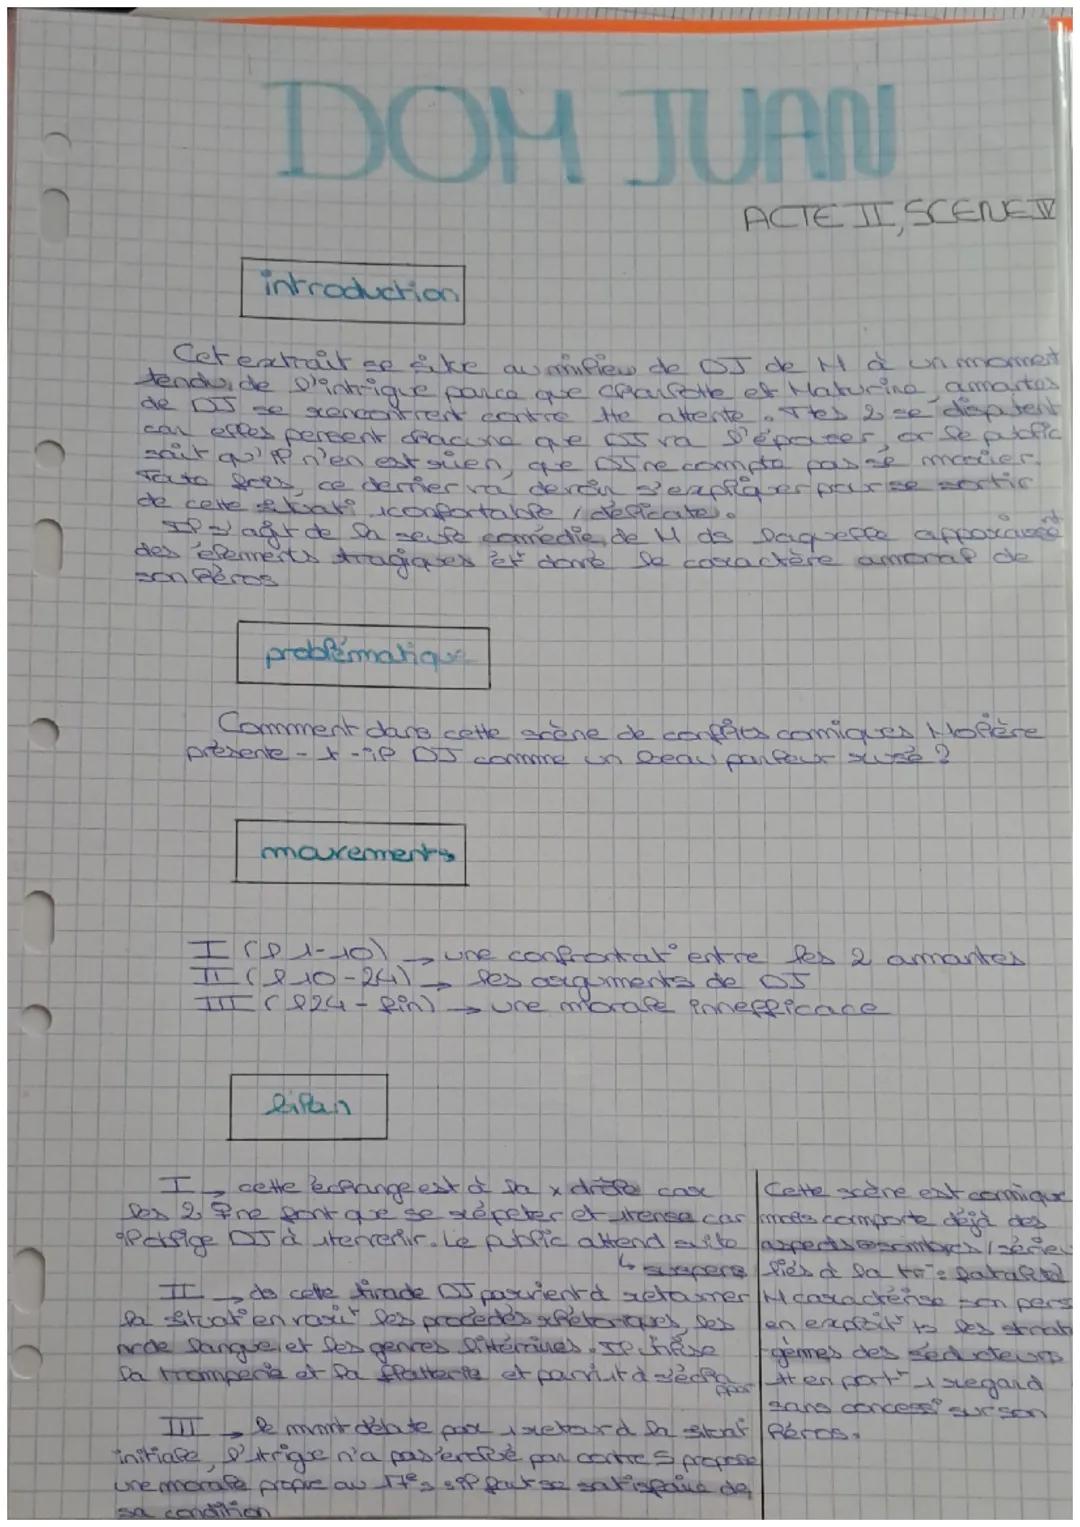 DOM JUAN
ACTE II, SCENE IV
introduction
Cet extrait se situe au milieu de DJ de M à un moment
tendu de l'intrigue parce que Charlotte et Maturine, amantes
de DJ se rencontrent contre tte attente. Ttes 2 se disputent
car elles pensent chacune que DJ va l'épouser, or le public
sait qu'il n'en est rien, que DJ ne compte pas se marier.
Toute fois, ce dernier va devoir s'expliquer pour se sortir
de cette situat° iconfortable / délicate.
Il s'agit de la seule comédie de M ds laquelle apparaisse
des éléments tragiques et dont le caractère amoral de
son héros
problématique
Comment dans cette scène de conflits comiques Molière
présente-t-il DJ comme un beau parleur rusé ?
mouvements
I (l 1-10) → une confrontat° entre les 2 amantes
II (l 10-24) → les arguments de DJ
III (l 24 - fin) → une morale innefficace
bilan
I → cette échange est à la x drôle car
les 2 ne font que se répéter et itense car
oblige DJ à itervenir. Le public attend suite
↳ suspens
II → ds cette tirade DJ parvient à retourner
la situat° en les procédés rhétoriques, les
de langue et les genres littéraires. Il
la tromperie et la flatterie et parvient à
III → le mvmt débute par 1 retour à la situat°
initiale, l'itrigue n'a pas évolué par contre S propose
une morale propre au 17e s : il faut se satisfaire de
sa condition
Cette scène est comique
mais comporte déjà des
aspects sombres / sérieux
liés à la
M caractérise son pers
en exploit° ts les strat
gèmes des séducteurs
tt en port° 1 regard
sans concess° sur son
héros.